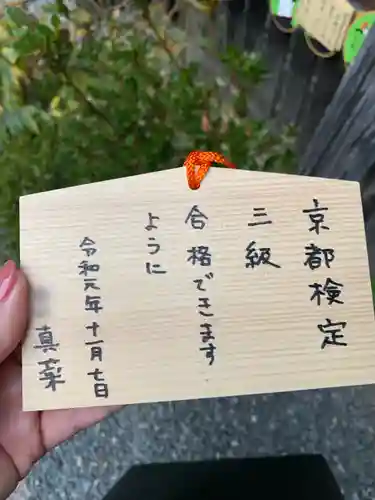 京都検定
三級
合格できます
ように
令和元年十一月七日
真菜